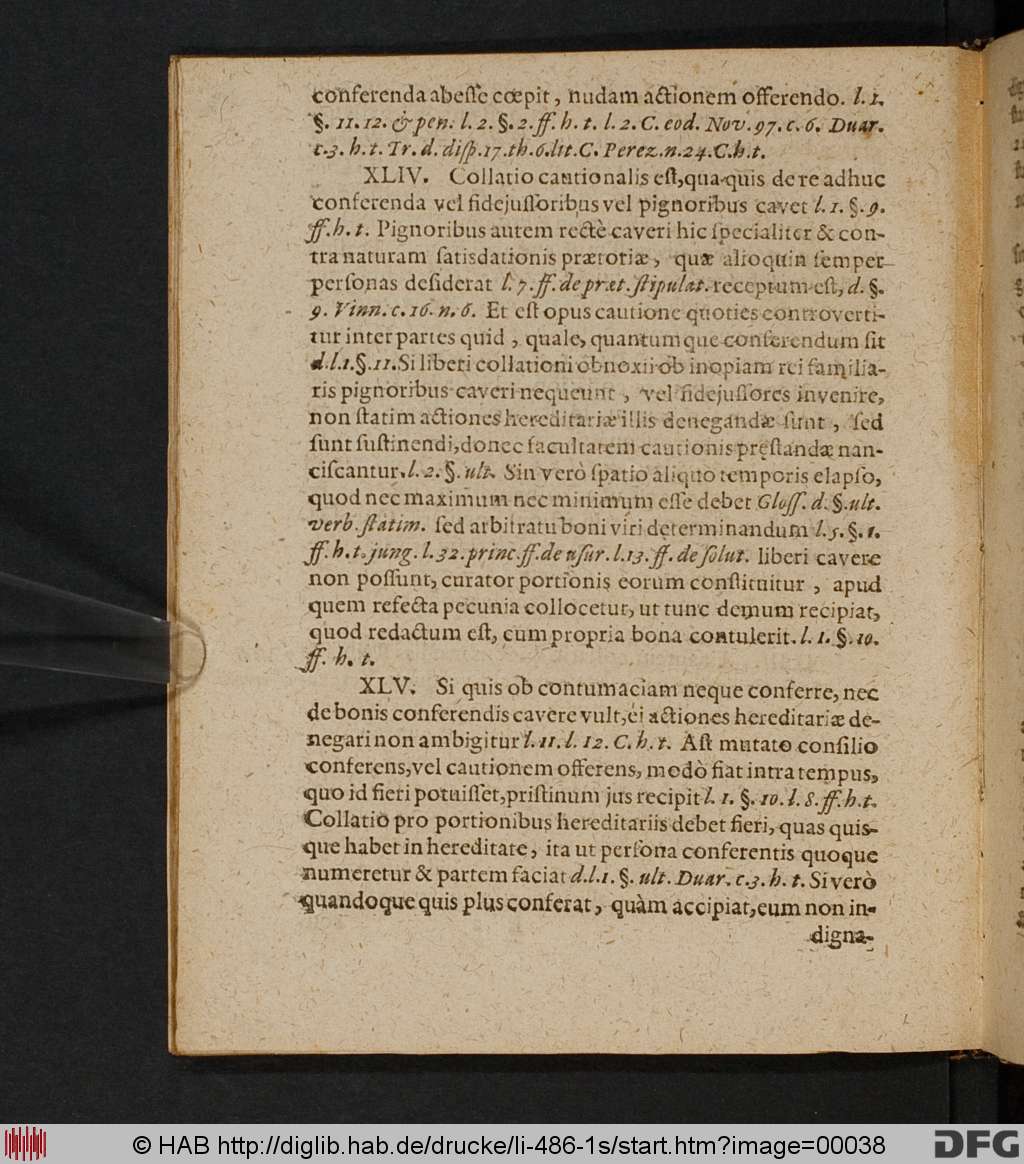 conferenda abeſſe cœpit, nudam actionem offerendo. l. 1.
§. 11. 12. & pen. l. 2. §. 2. ff. h. t. l. 2. C. eod. Nov. 97. c. 6. Duar.
c. 3. h. t. Tr. d. diſp. 17. th. 6. lit. C. Perez. n. 24. C. h. t.
XLIV. Collatio cautionalis eſt, qua quis de re adhuc
conferenda vel fidejuſſoribus vel pignoribus cavet l. 1. §. 9.
ff. h. t. Pignoribus autem rectè caveri hic ſpecialiter & con-
tra naturam ſatisdationis prætoriæ, quæ alioquin ſemper
perſonas deſiderat l. 7. ff. de præt. ſtipulat. receptum eſt, d. §.
9. Vinn. c. 16. n. 6. Et eſt opus cautione quoties controverti-
tur inter partes quid, quale, quantumque conferendum ſit
d. l. 1. §. 11. Si liberi collationi obnoxii ob inopiam rei familia-
ris pignoribus caveri nequeunt, vel fidejuſſores invenire,
non ſtatim actiones hereditariæ illis denegandæ ſunt, ſed
ſunt ſuſtinendi, donec facultatem cautionis pręſtandæ nan-
ciſcantur. l. 2. §. ult. Sin verò ſpatio aliquo temporis elapſo,
quod nec maximum nec minimum eſſe debet Gloſſ. d. §. ult.
verb. ſtatim. ſed arbitratu boni viri determinandum l. 5. §. 1.
ff. h. t. jung. l. 32. princ. ff. de uſur. l. 13. ff. de ſolut. liberi cavere
non poſſunt, curator portionis eorum conſtituitur, apud
quem refecta pecunia collocetur, ut tunc demum recipiat,
quod redactum eſt, cum propria bona contulerit. l. 1. §. 10.
ff. h. t.
XLV. Si quis ob contumaciam neque conferre, nec
de bonis conferendis cavere vult, ei actiones hereditariæ de-
negari non ambigitur l. 11. l. 12. C. h. t. Aſt mutato conſilio
conferens, vel cautionem offerens, modò fiat intra tempus,
quo id fieri potuiſſet, priſtinum jus recipit l. 1. §. 10. l. 8. ff. h. t.
Collatio pro portionibus hereditariis debet fieri, quas quis-
que habet in hereditate, ita ut perſona conferentis quoque
numeretur & partem faciat d. l. 1. §. ult. Duar. c. 3. h. t. Si verò
quandoque quis plus conferat, quàm accipiat, eum non in-
digna-
© HAB http://diglib.hab.de/drucke/li-486-1s/start.htm?image=00038
DFG